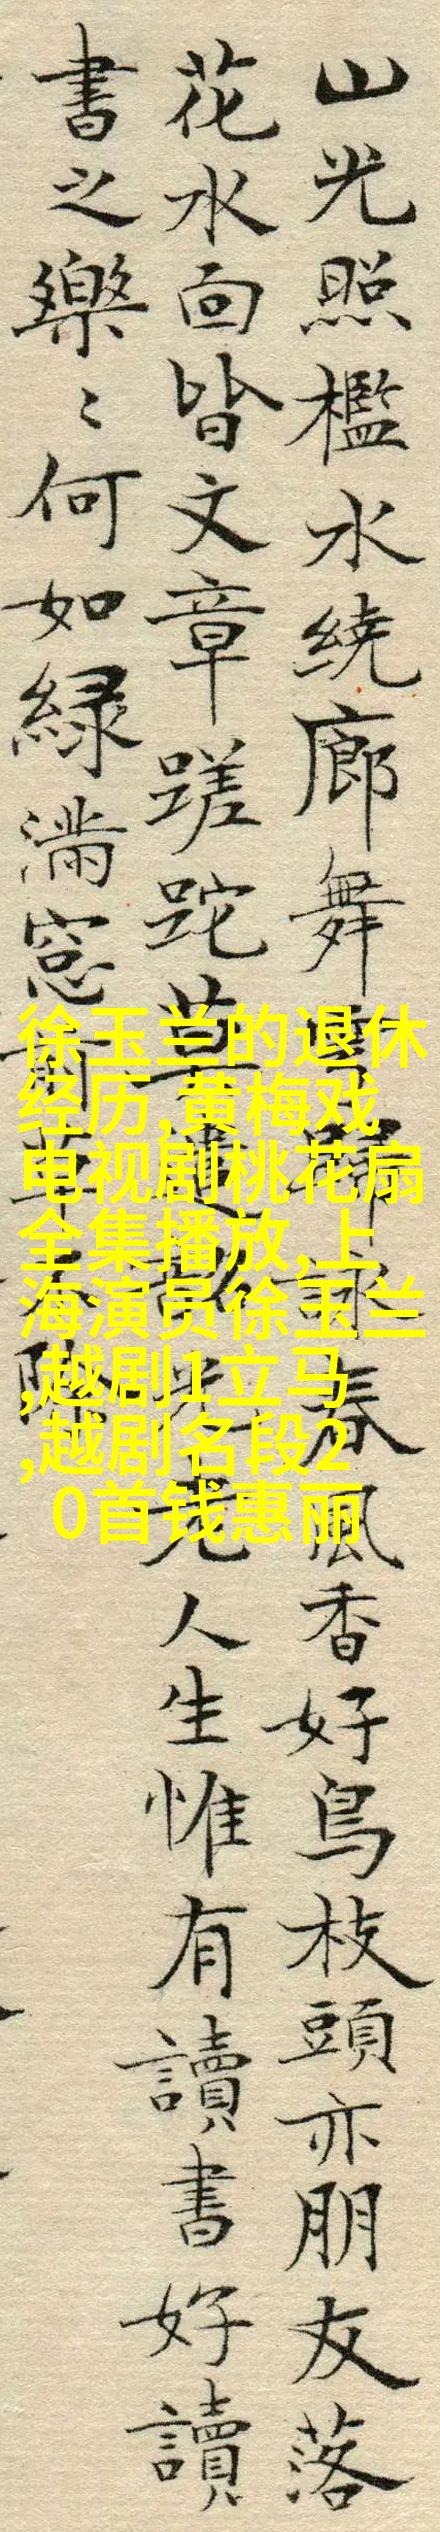 山光照檻水绕廊舞雩歸詠春風香好鳥枝頭亦朋友落
花水面皆文章蹉跎莫遣韶光老人生惟有讀書好讀
書之樂〻何如緑满窓前草不除
徐玉兰的退休
经历,黄梅戏
电视剧桃花扇
全集播放,上
海演员徐玉兰
,越剧1立马
,越剧名段2
0首钱惠丽